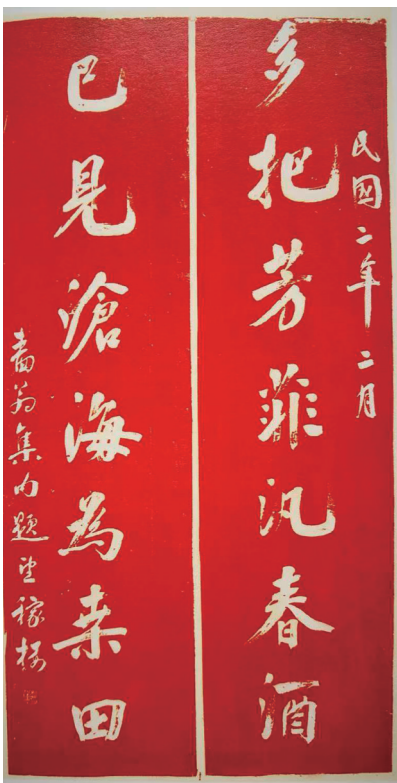 民國二年二月
多把芳菲汎春酒
已見滄海為桒田
嗇翁集句題望稼樓